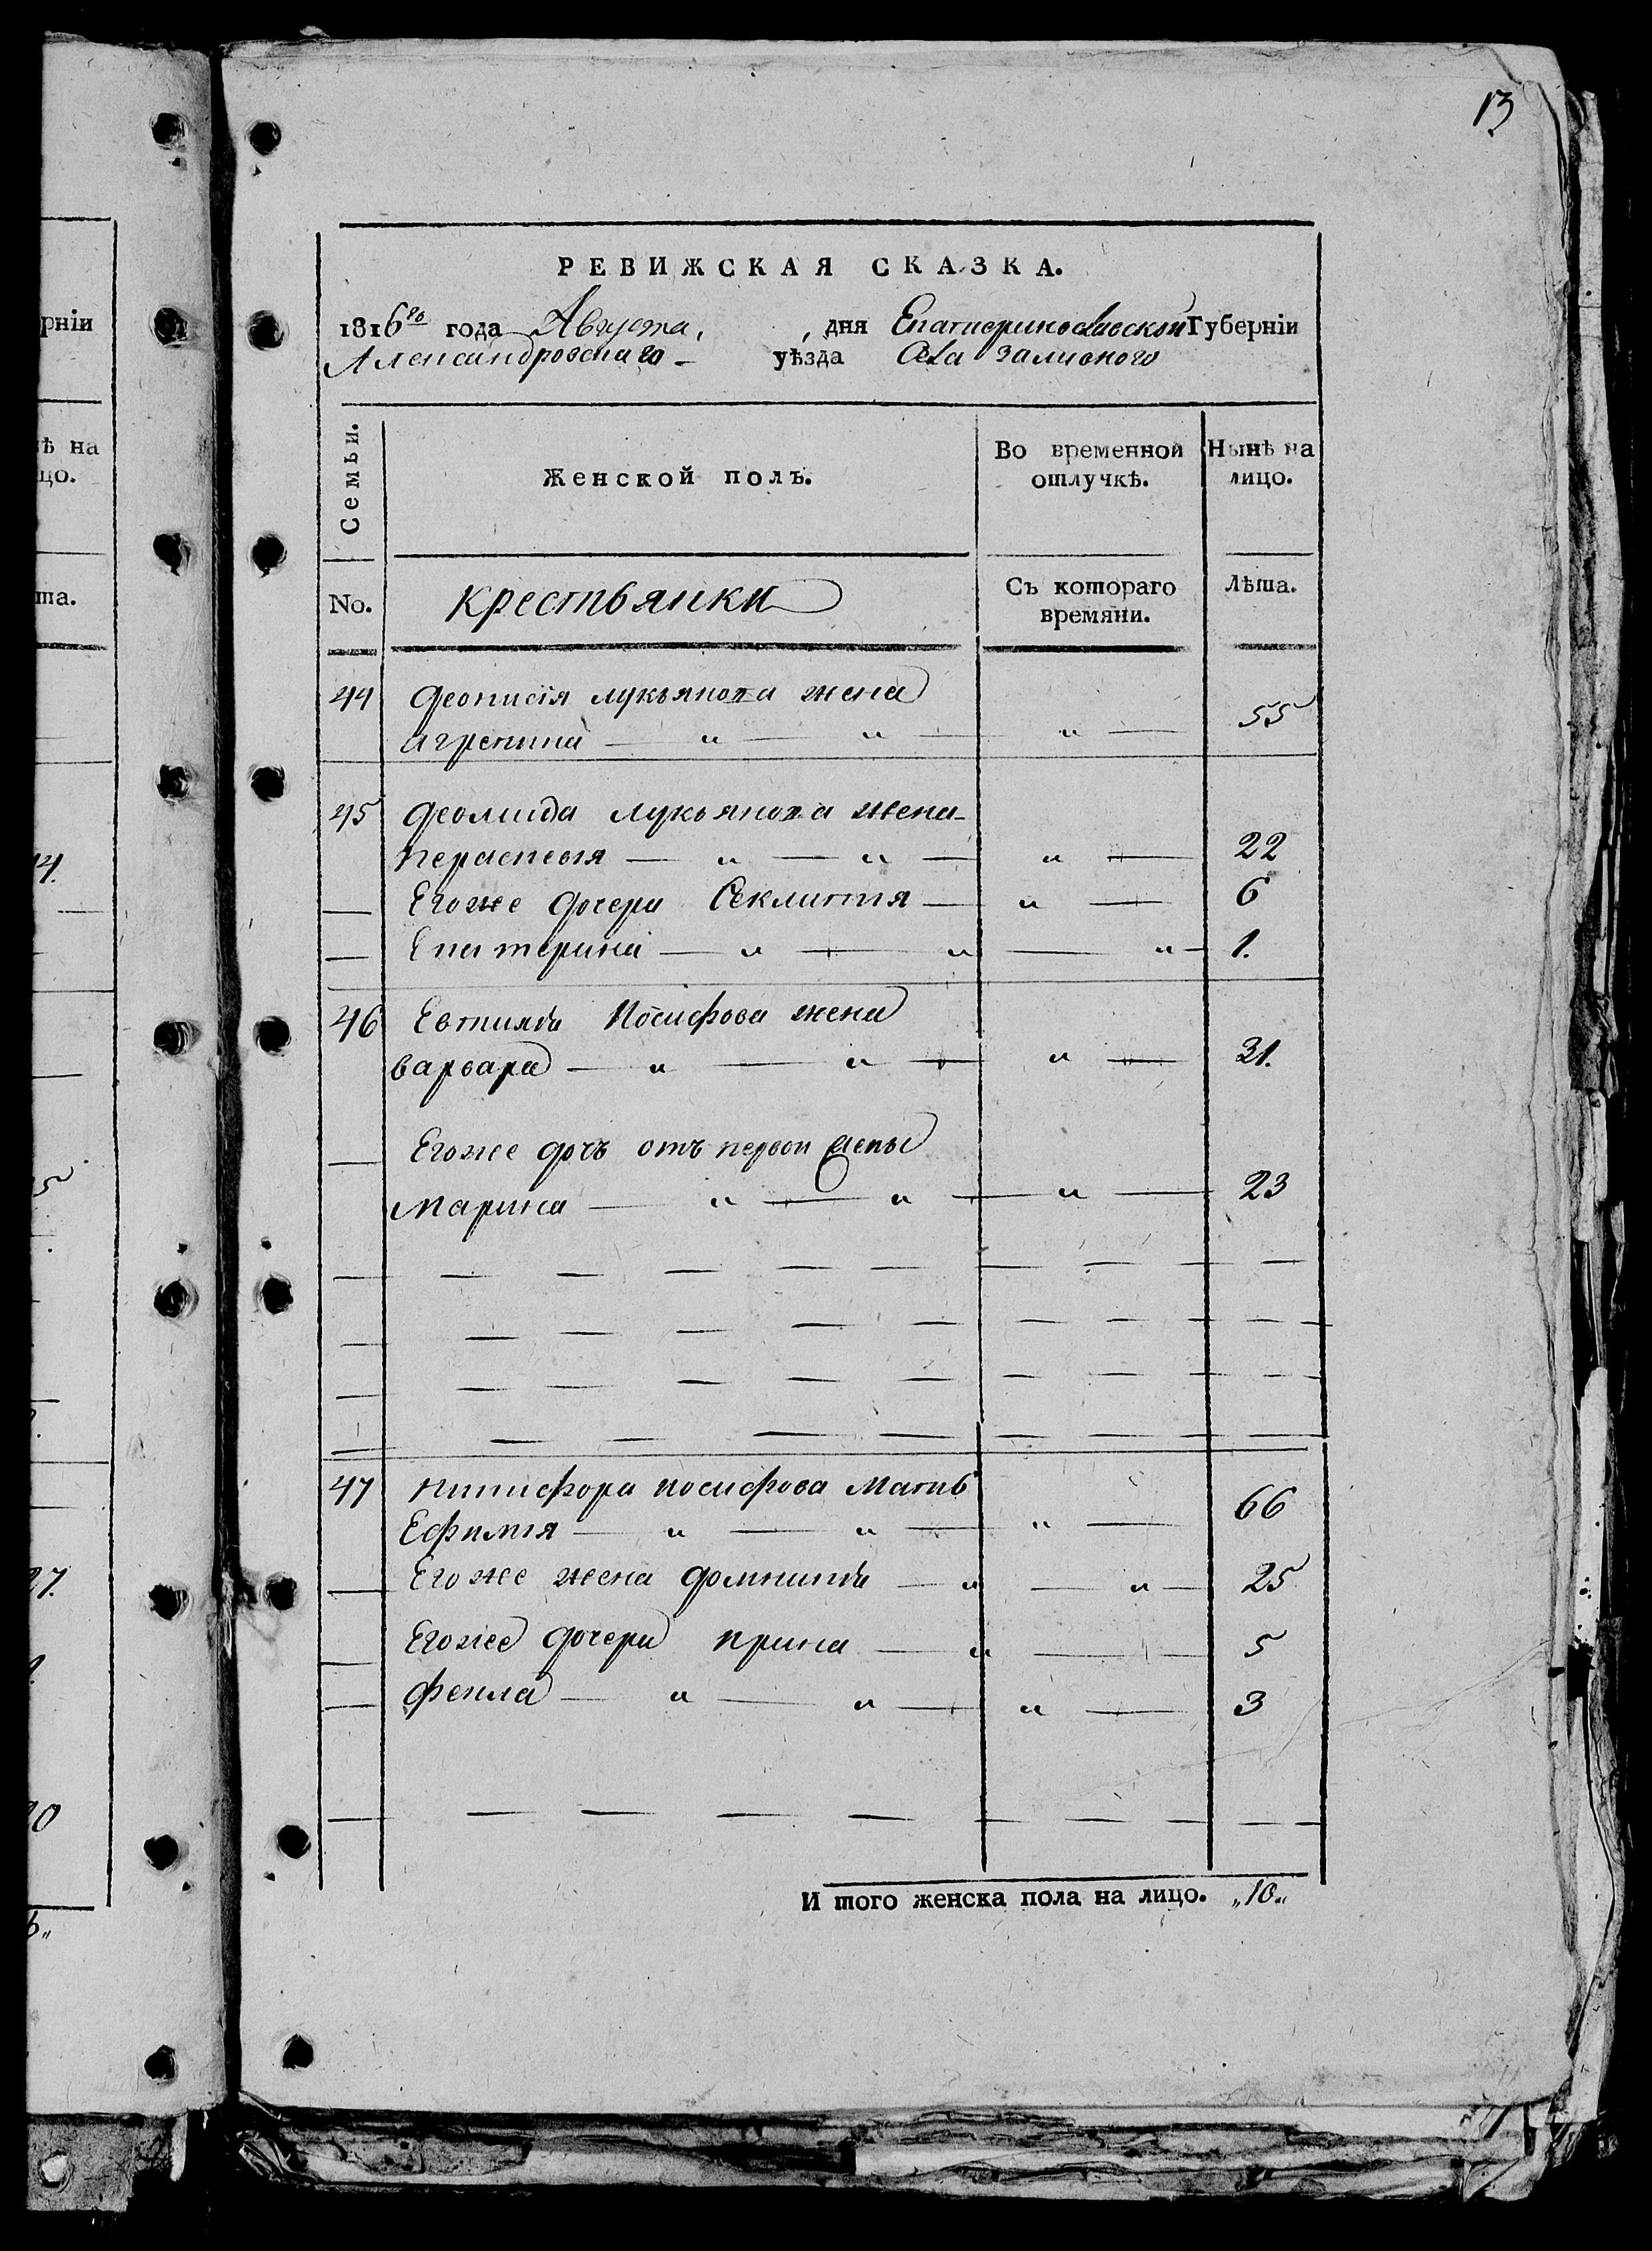 13
РЕВИЖСКАЯ СКАЗКА.
1816го года Августа, , дня Екатеринославской Губерніи
Александровскаго уѣзда Села Заливного
Семьи.
Женской полъ.
Во временной отлучкѣ.
Нынѣ на лицо.
No.
крестьянки
Съ котораго времяни.
Лѣта.
44 Деонисія лукьянова жена
агрепина — „ — „ — „ — 55
45 Деомида лукьянова жена
Параскевія — „ — „ — „ — 22
— Егоже дочери Секлитія — „ — 6
— Екатерина — „ — „ — „ — 1.
46 Евтихія Иосифова жена
варвара — „ — „ — „ — 31.
— Егоже дочь отъ первой жены
Марина — „ — „ — „ — 23
47 Никифора иосифова мать
Ефимія — „ — „ — „ — 66
— Егоже жена домникія — „ — „ — 25
— Егоже дочери ирина — „ — 5
— фекла — „ — „ — „ — 3
И того женска пола на лицо. „10„
рніи
ѣ на
цо.
та.
4.
5
27.
20
6„